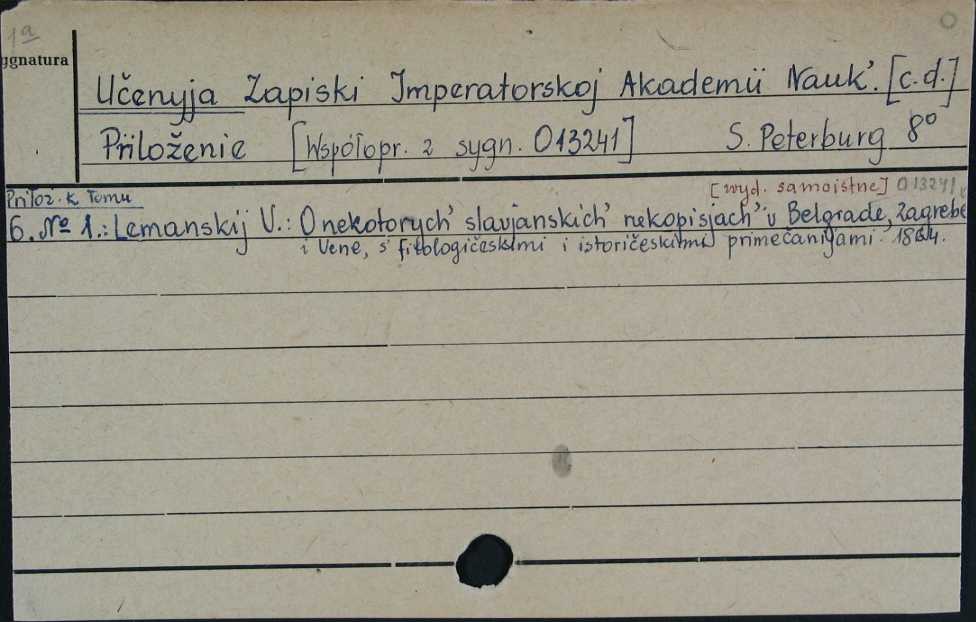 1a
ygnatura
Učenyja Zapiski Imperatorskoj Akademii Nauk'. [c.d.]
Priloženie [Współopr. z sygn. O13241] S. Peterburg 8°
Priłoż. k Tomu [wyd. samoistne] O13241
6. No 1.: Lemanskij V.: O nekotorych' slavjanskich' rukopisjach' v Belgrade, Zagrebe
i Vene, s' filologičeskimi i istoričeskimi primečanijami. 1864.